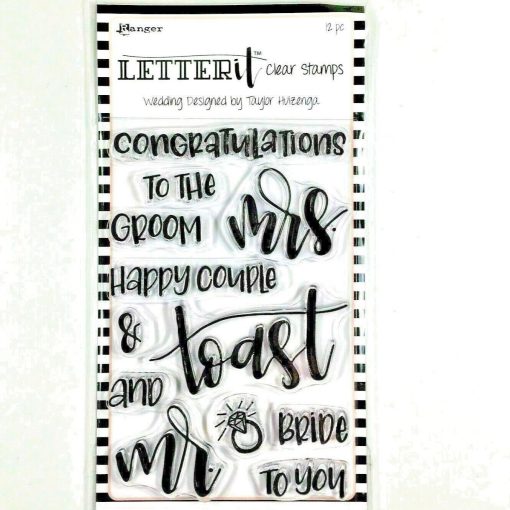 Ranger
12 pc
LETTER it™ Clear Stamps
Wedding Designed by Taylor Huizenga
CONGRATULATIONS
TO THE
GROOM
mrs.
HAPPY COUPLE
&
toast
AND
mr.
BRIDE
TO YOU